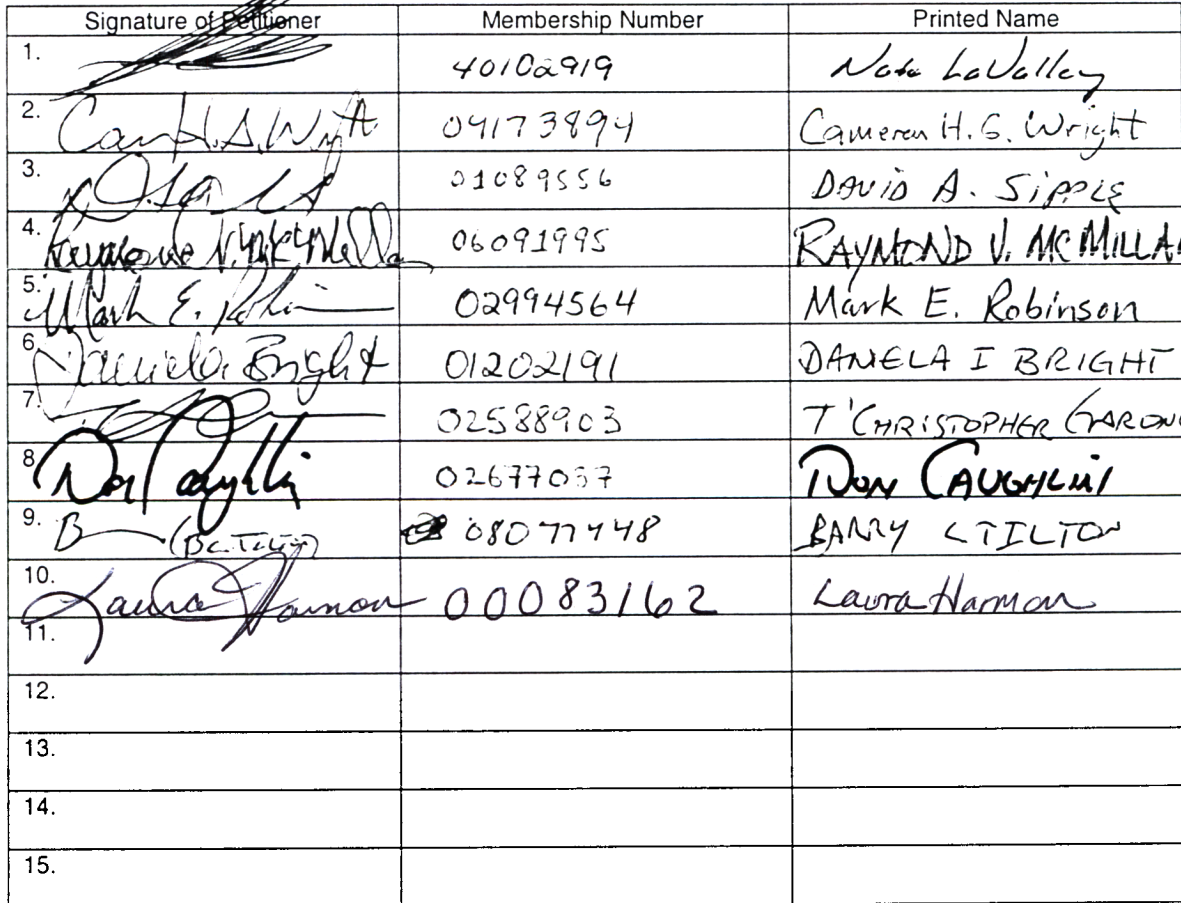 Signature of Petitioner Membership Number Printed Name
1. 40102919 Nate LaValley
2. Cam H.G. Wright 04173894 Cameron H. G. Wright
3. 01089556 DAVID A. SIPPLE
4. Raymond V. McMillan 06091995 RAYMOND V. MCMILLAN
5. Mark E. Robin 02994564 Mark E. Robinson
6 Daniela Bright 01202191 DANIELA I BRIGHT
7. 02588903 T'CHRISTOPHER GARDNE
8 Don Caughlin 02677037 DON CAUGHLIN
9. B 08077448 BARRY C TILTON
10. Laura Harmon 00083162 Laura Harmon
11.
12.
13.
14.
15.